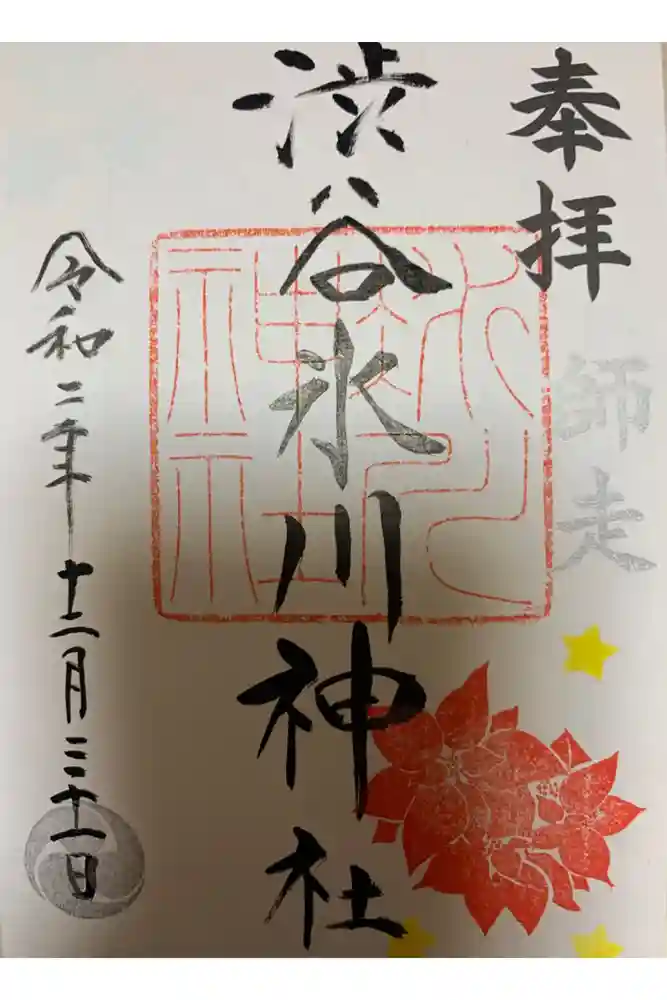 奉拝
師走
渋谷氷川神社
氷川
神社
令和二年十二月三十一日